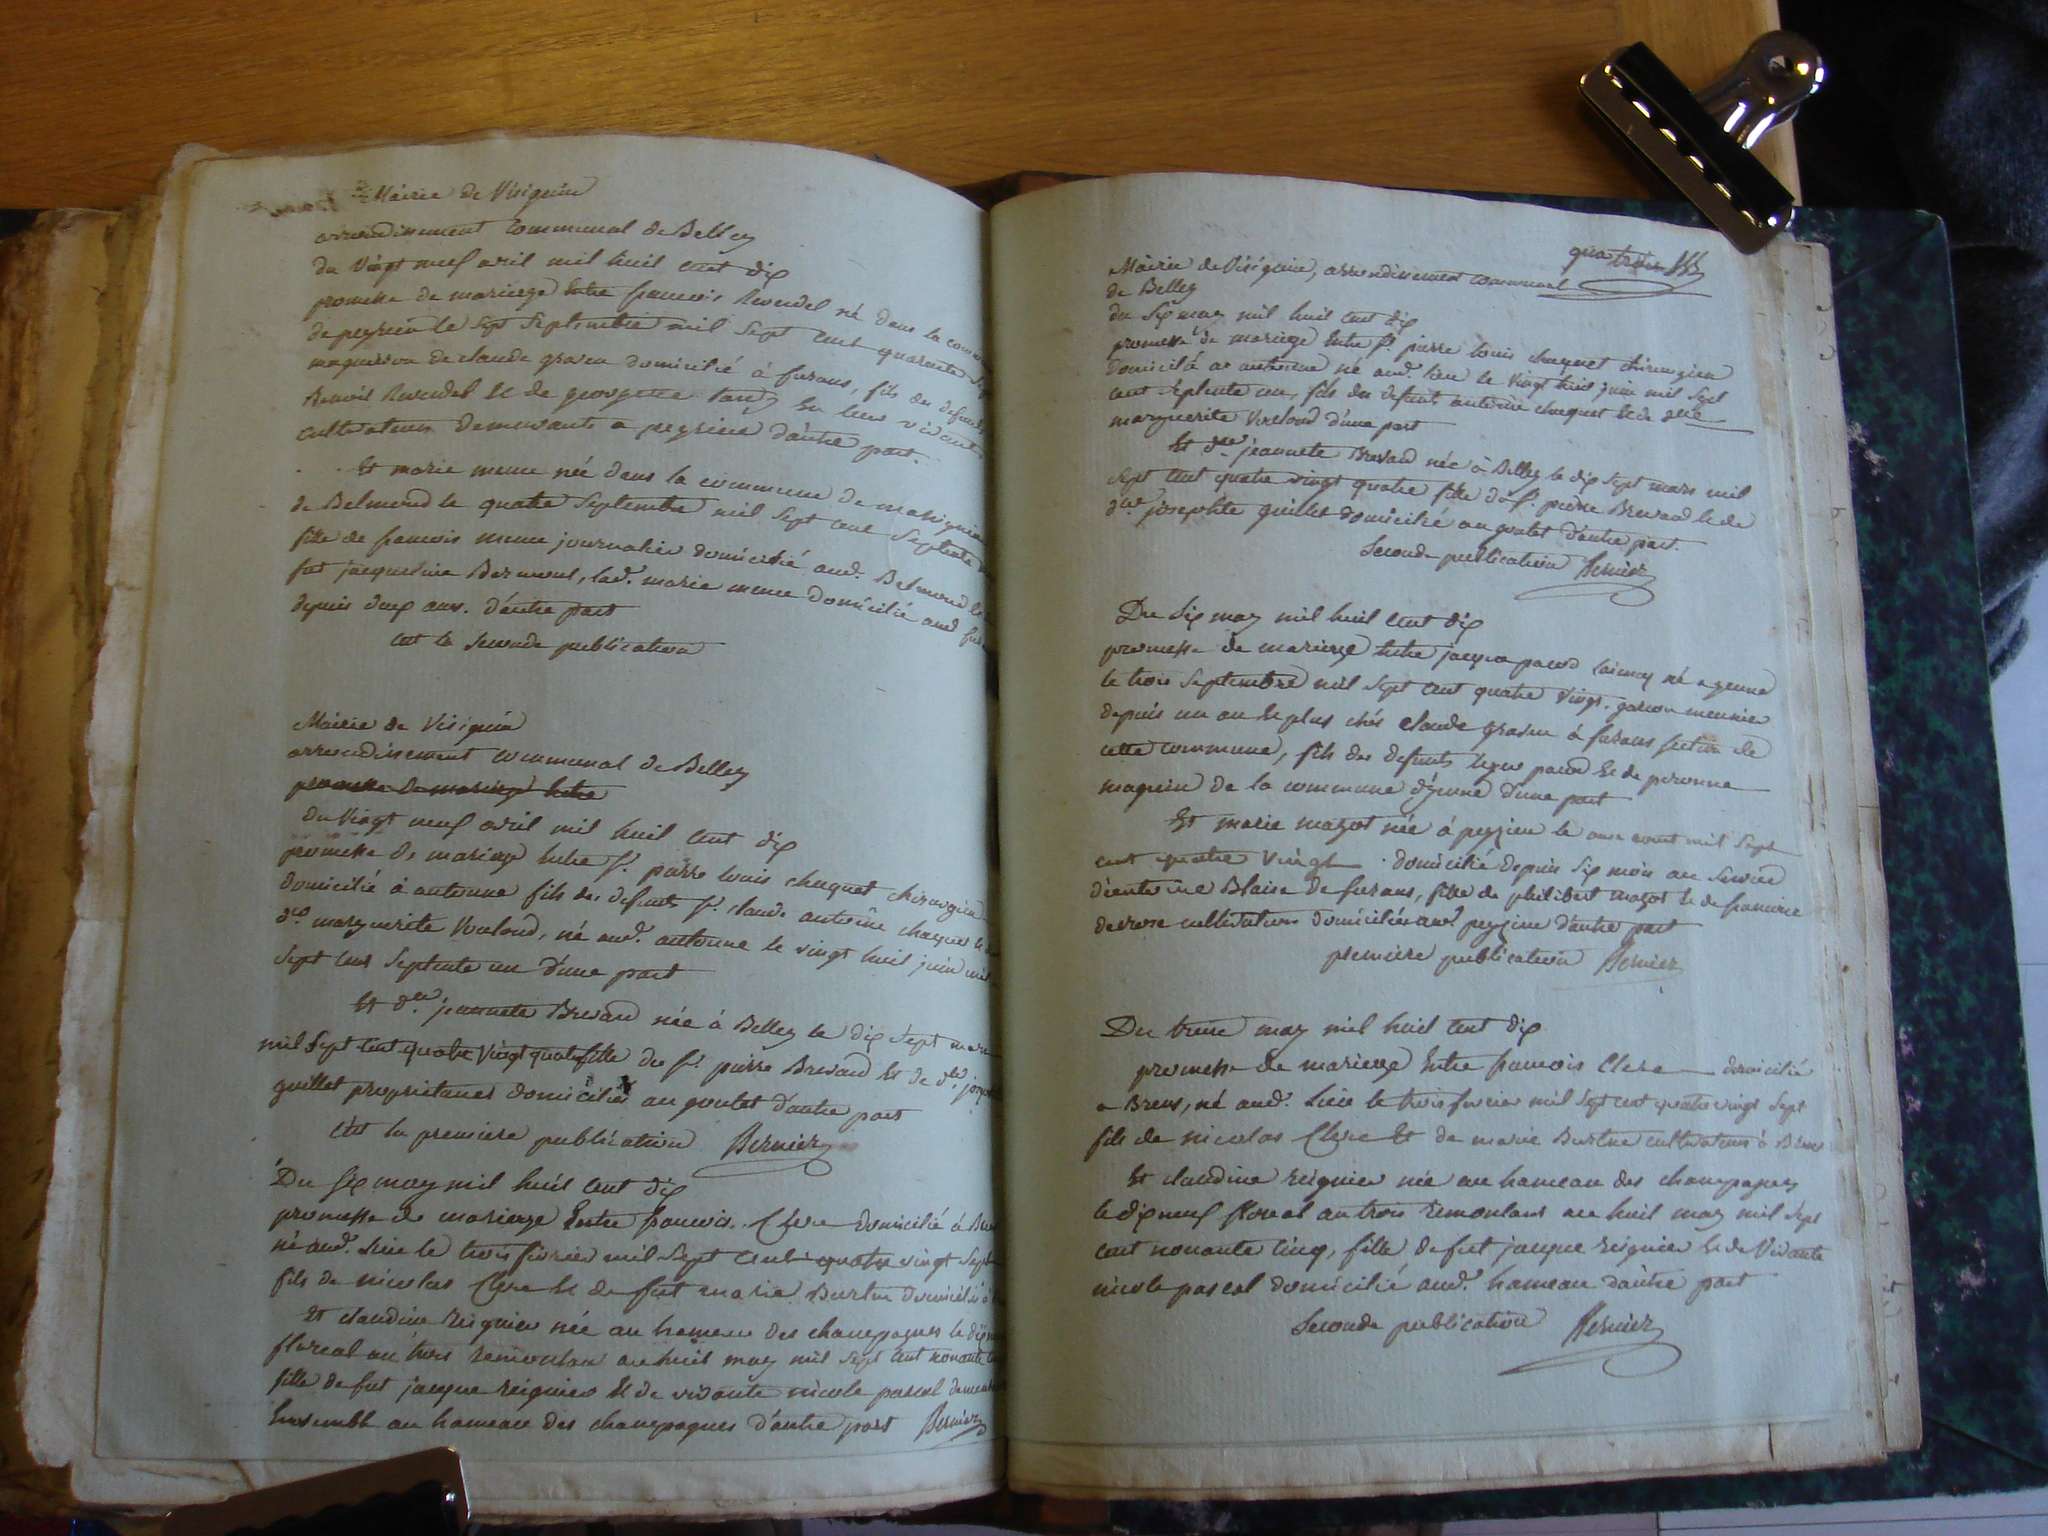 Mairie de Virignin
arrondissement communal de Belley
du vingt neuf avril mil huit cent dix
promesse de mariage entre francois Revendel né dans la
de peyrieu le sept septembre mil sept cent quarante
de claude gravin domicilié à furans, fils des defunts
Benoit Revendel et de georgette en leur vivant
cultivateurs demeurants a peyrieu d'autre part.
Et marie meme née dans la commune de
de Belmond le quatre septembre mil sept cent septante
fille de francois meme journalier domicilié aud. Belmond
fut jacqueline , lad. marie meme domicilié aud
depuis deux ans. d'autre part
C'est la seconde publication
Mairie de Virignin
arrondissement communal de Belley
promesse de mariage entre
du vingt neuf avril mil huit cent dix
promesse de mariage entre sr. pierre louis chaquet chirurgien
domicilié à antonne fils des defunts sr. claude antoine chaquet
dlle marguerite Verlond, né aud. antonne le vingt huit juin mil
sept cent septente un d'une part
Et dlle. jeannete Brevard née à Belley le dix sept mars
mil sept cent quatre vingt quatre fille du sr. pierre Brevard et de dlle.
guillet proprietaires domiciliés au goutet d'autre part
C'est la premiere publication Bernier
Du six may mil huit cent dix
promesse de mariage Entre francois Clerc domicilié à
né aud. lieu le trois fevrier mil sept cent quatre vingt sept
fils de nicolas Clerc et de fut marie Burtin domicilié à
Et claudine reignier née au hameau des champagnes le dix
floreal an trois remontant au huit may mil sept cent nonante
fille de fut jacque reignier Et de vivante nicole pascal
Ensemble au hameau des champagnes d'autre part Bernier
quatrois
Mairie de Virignin, arrondissement communal
de Belley
du six may mil huit cent dix
promesse de mariage Entre sr. pierre louis chaquet chirurgien
domicilié a antonne né aud. lieu le vingt huit juin mil sept
cent septente un, fils des defunts antoine chaquet et de dlle
marguerite Verlond d'une part
Et dlle. jeannete Brevard née à Belley le dix sept mars mil
sept cent quatre vingt quatre fille de sr. pierre Brevard et de
dlle. josephte guillet domicilié au goutet d'autre part.
Seconde publication Bernier
Du six may mil huit cent dix
promesse de mariage Entre jacque paud né a yenne
le trois septembre mil sept cent quatre vingt. garcon meunier
depuis un an et plus chés claude gravin à furans section de
cette commune, fils des defunts paud et de peronne
maguin de la commune d'yenne d'une part
Et marie mazot née à peyrieu le onze aout mil sept
cent quatre vingt . domicilié depuis six mois au service
d'antoine Blaise de furans, fille de philibert mazot et de francoise
derose cultivateurs domiciliés aud. peyrieu d'autre part
premiere publication Bernier
Du treise may mil huit cent dix
promesse de mariage Entre francois Clerc domicilié
a Brens, né aud. lieu le trois fevrier mil sept cent quatre vingt sept
fils de nicolas Clerc Et de marie Burtin cultivateurs à Brens
Et claudine reignier née au hameau des champagnes
le dix neuf floreal an trois remontant au huit may mil sept
cent nonante cinq, fille de fut jacque reignier et de vivante
nicole pascal domicilié aud. hameau d'autre part
Seconde publication Bernier